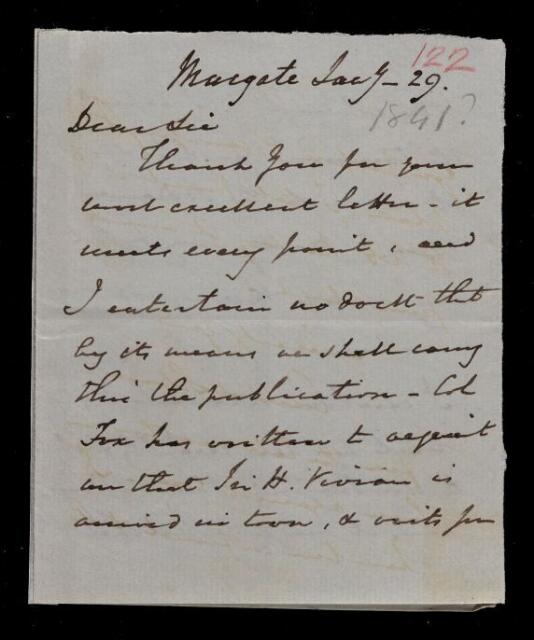 122
Margate Jany - 29.
1841?
Dear Sir
Thank You for your
most excellent letter - it
meets every point, and
I entertain no doubt that
by its means we shall carry
thro' the publication - Col
Fox has written to acquaint
me that Sir H. Vivian is
arrived in town, & waits for